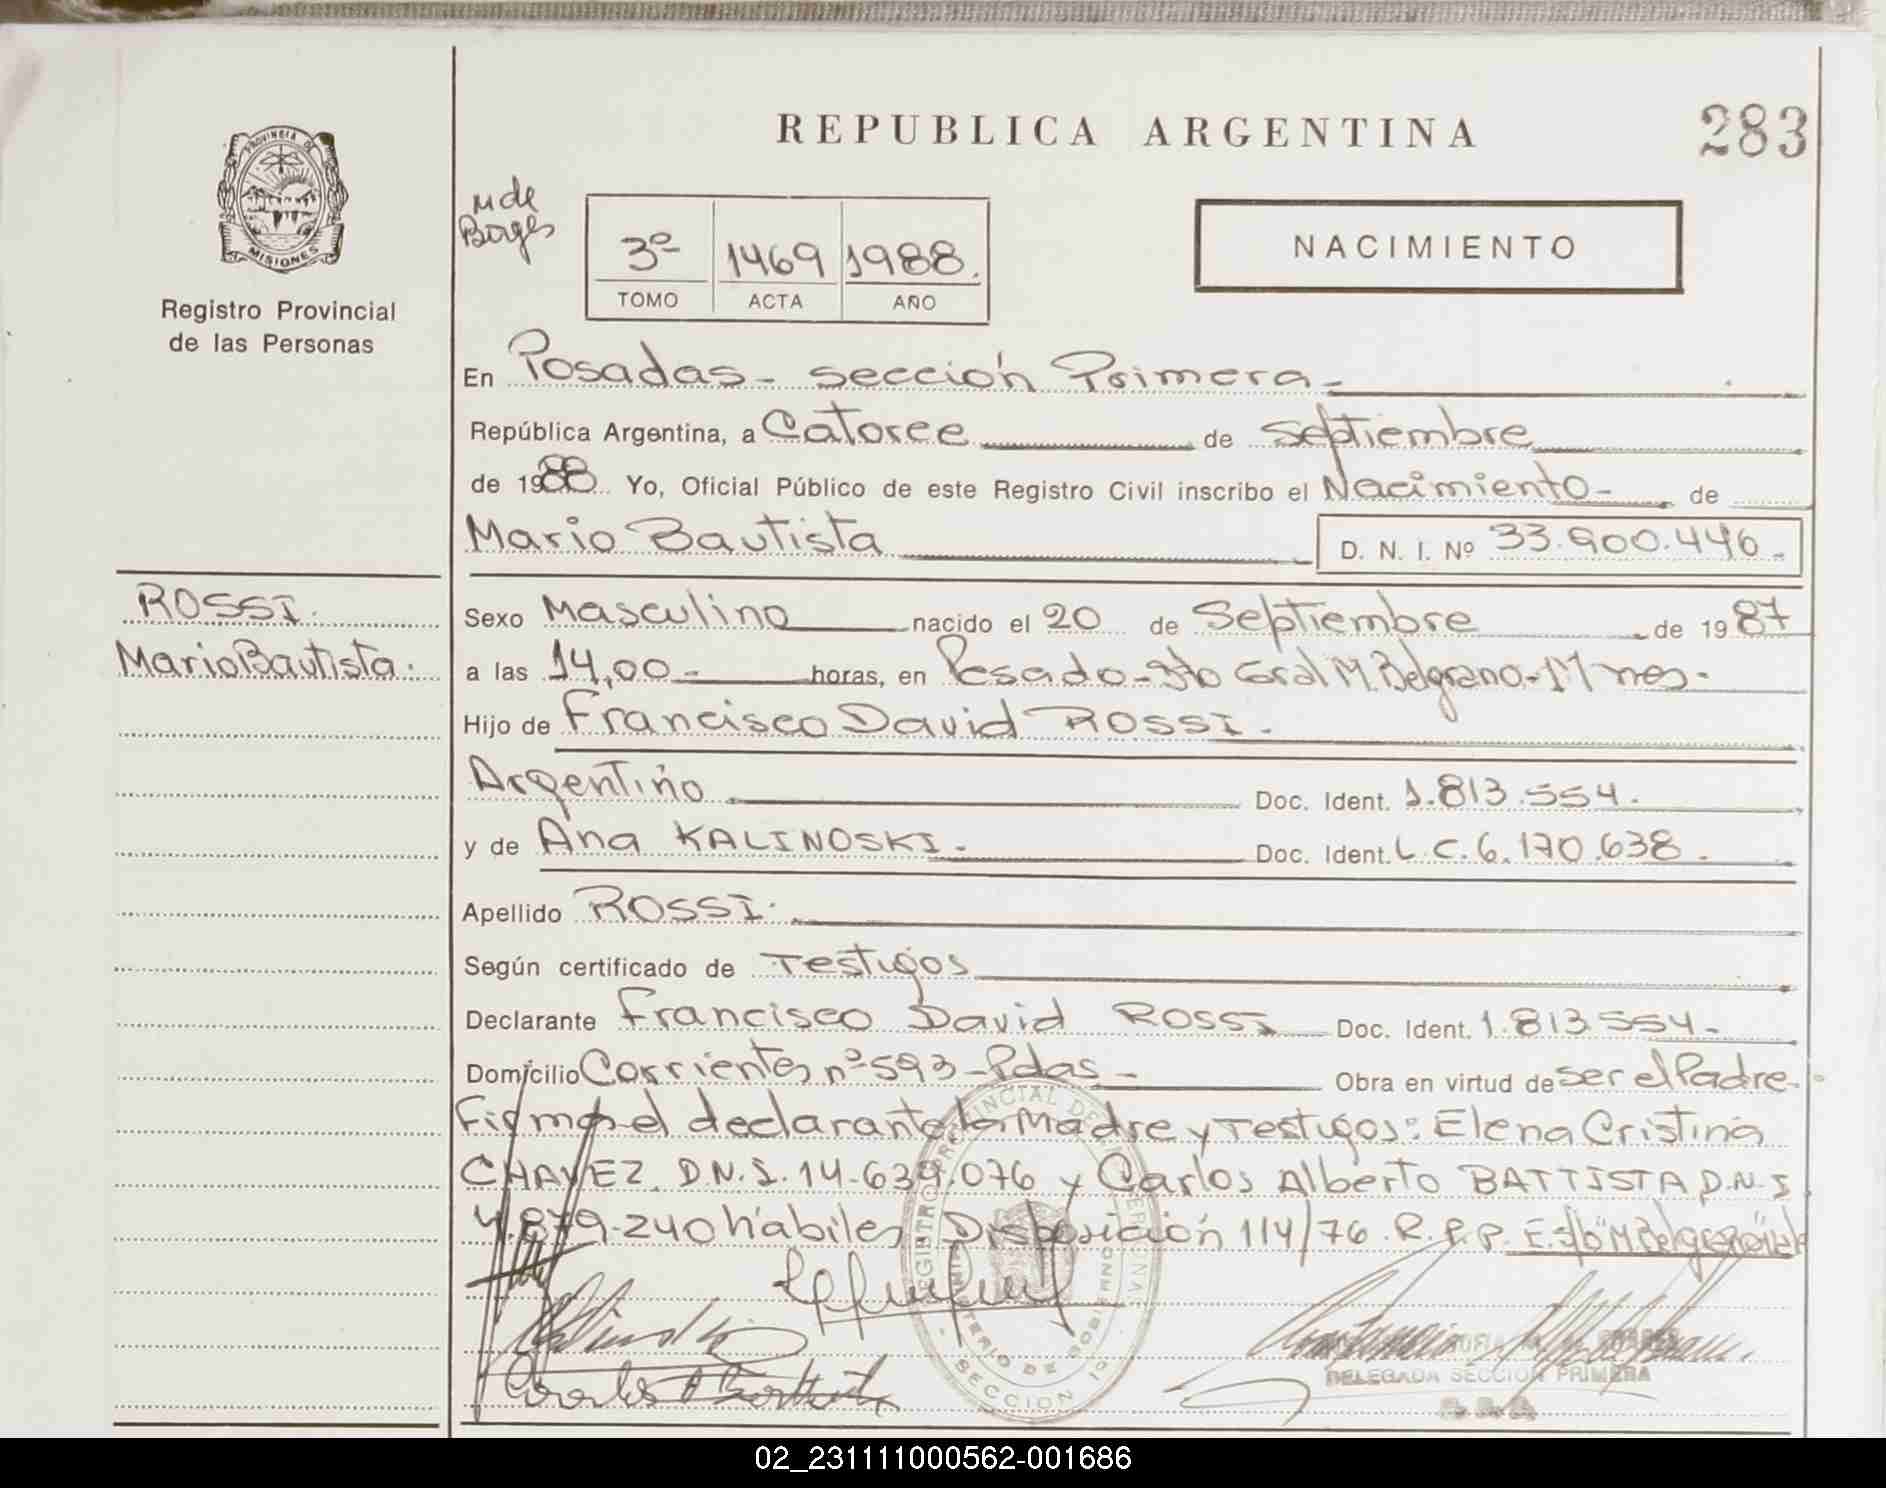 REPUBLICA ARGENTINA
283
PROVINCIA DE
MISIONES
Registro Provincial
de las Personas
M de
Borges
3º 1469 1988.
TOMO ACTA AÑO
NACIMIENTO
En Posadas - sección Primera -
República Argentina, a Catorce de Septiembre
de 1988. Yo, Oficial Público de este Registro Civil inscribo el Nacimiento - de
Mario Bautista D. N. I. Nº 33.900.446 -
ROSSI.
Mario Bautista.
Sexo Masculino nacido el 20 de Septiembre de 1987
a las 14,00 - horas, en Gral M. Belgrano -
Hijo de Francisco David ROSSI.
Argentino Doc. Ident. 1.813.554.
y de Ana KALINOSKI. Doc. Ident. L.C. 6.170.638.
Apellido ROSSI.
Según certificado de Testigos
Declarante Francisco David ROSSI Doc. Ident. 1.813.554 -
Domicilio Corrientes nº 593 - Pdas - Obra en virtud de ser el Padre -
Firman el declarante, la Madre y Testigos: Elena Cristina
CHAVEZ. D.N.I. 14.639.076 y Carlos Alberto BATTISTA D.N.I
4.879.240 hábiles Disposición 114/76. R.P.P.
SECCION 1ª
DELEGADA SECCION PRIMERA
02_231111000562-001686